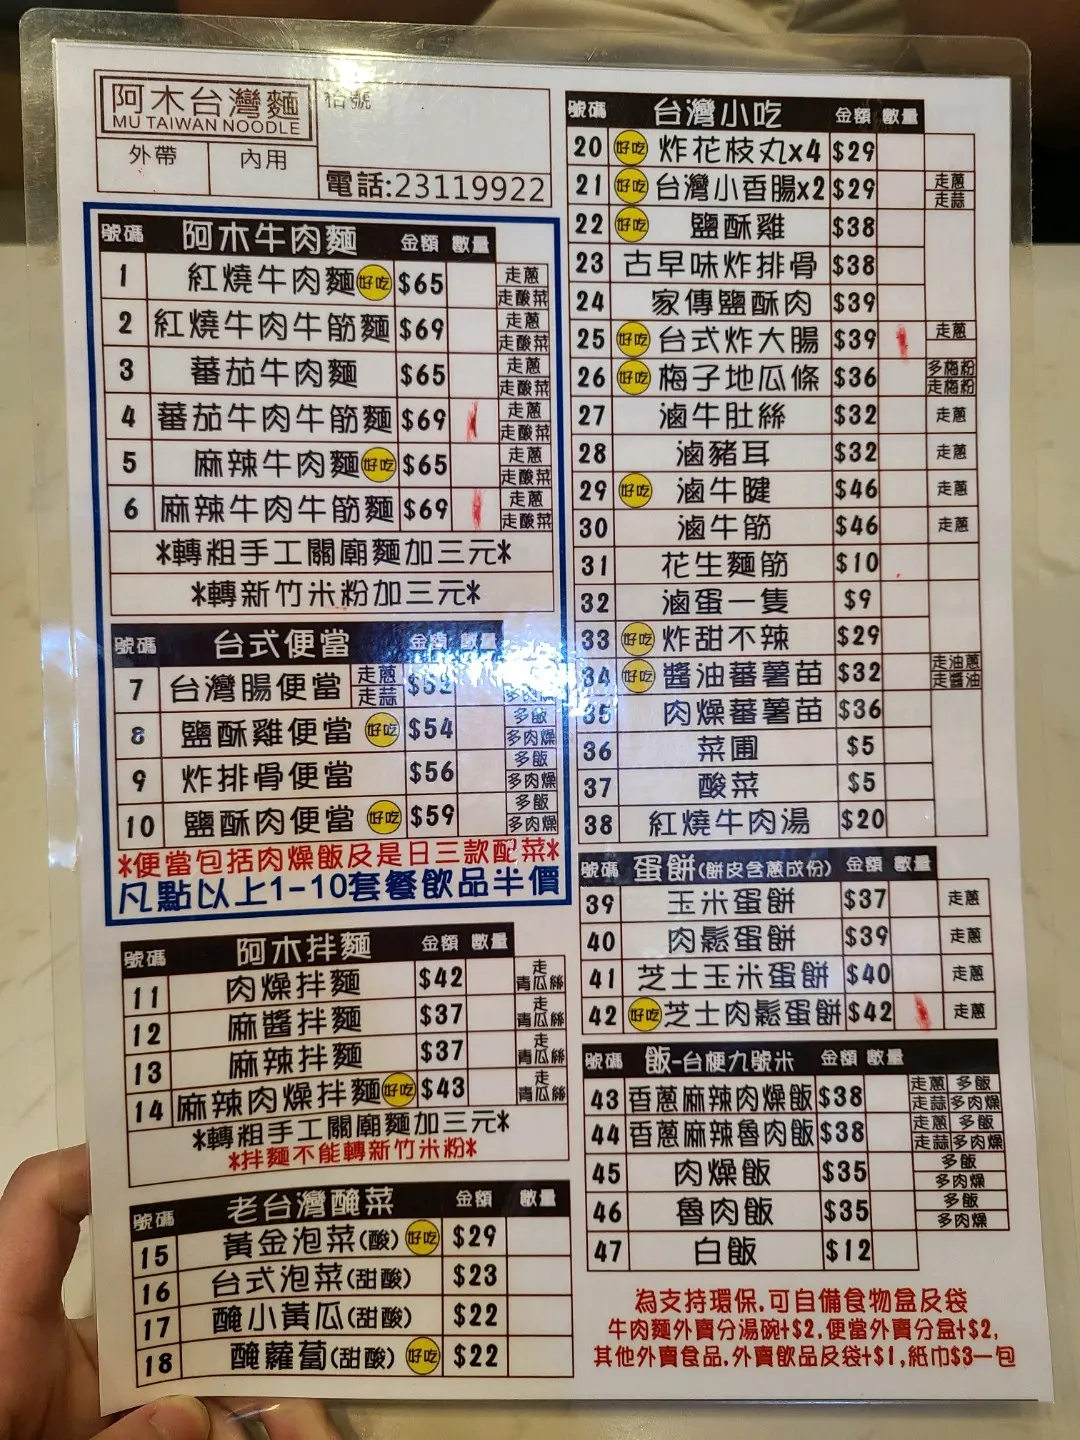 阿木台灣麵
MU TAIWAN NOODLE
外帶 內用
電話:23119922
號碼 阿木牛肉麵 金額 數量
1 紅燒牛肉麵 好吃 $65 走蔥 走酸菜
2 紅燒牛肉牛筋麵 $69 走蔥 走酸菜
3 蕃茄牛肉麵 $65 走蔥 走酸菜
4 蕃茄牛肉牛筋麵 $69 走蔥 走酸菜
5 麻辣牛肉麵 好吃 $65 走蔥 走酸菜
6 麻辣牛肉牛筋麵 $69 走蔥 走酸菜
*轉粗手工關廟麵加三元*
*轉新竹米粉加三元*
號碼 台式便當 金額 數量
7 台灣腸便當 走蔥 走蒜 $52
8 鹽酥雞便當 好吃 $54 多飯 多肉燥
9 炸排骨便當 $56 多飯 多肉燥
10 鹽酥肉便當 好吃 $59 多飯 多肉燥
*便當包括肉燥飯及是日三款配菜*
凡點以上1-10套餐飲品半價
號碼 阿木拌麵 金額 數量
11 肉燥拌麵 $42 走青瓜絲
12 麻醬拌麵 $37 走青瓜絲
13 麻辣拌麵 $37 走青瓜絲
14 麻辣肉燥拌麵 好吃 $43 走青瓜絲
*轉粗手工關廟麵加三元*
*拌麵不能轉新竹米粉*
號碼 老台灣醃菜 金額 數量
15 黃金泡菜(酸) 好吃 $29
16 台式泡菜(甜酸) $23
17 醃小黃瓜(甜酸) $22
18 醃蘿蔔(甜酸) 好吃 $22
號碼 台灣小吃 金額 數量
20 好吃 炸花枝丸x4 $29
21 好吃 台灣小香腸x2 $29 走蔥 走蒜
22 好吃 鹽酥雞 $38
23 古早味炸排骨 $38
24 家傳鹽酥肉 $39
25 好吃 台式炸大腸 $39 走蔥
26 好吃 梅子地瓜條 $36 多梅粉 走梅粉
27 滷牛肚絲 $32 走蔥
28 滷豬耳 $32 走蔥
29 好吃 滷牛腱 $46 走蔥
30 滷牛筋 $46 走蔥
31 花生麵筋 $10
32 滷蛋一隻 $9
33 好吃 炸甜不辣 $29
34 好吃 醬油蕃薯苗 $32 走油蔥 走醬油
35 肉燥蕃薯苗 $36
36 菜圃 $5
37 酸菜 $5
38 紅燒牛肉湯 $20
號碼 蛋餅(餅皮含蔥成份) 金額 數量
39 玉米蛋餅 $37 走蔥
40 肉鬆蛋餅 $39 走蔥
41 芝士玉米蛋餅 $40 走蔥
42 好吃 芝士肉鬆蛋餅 $42 走蔥
號碼 飯-台梗九號米 金額 數量
43 香蔥麻辣肉燥飯 $38 走蔥 多飯 走蒜 多肉燥
44 香蔥麻辣魯肉飯 $38 走蔥 多飯 走蒜 多肉燥
45 肉燥飯 $35 多飯 多肉燥
46 魯肉飯 $35 多飯 多肉燥
47 白飯 $12
為支持環保.可自備食物盒及袋
牛肉麵外賣分湯碗+$2.便當外賣分盒+$2,
其他外賣食品.外賣飲品及袋+$1,紙巾$3一包